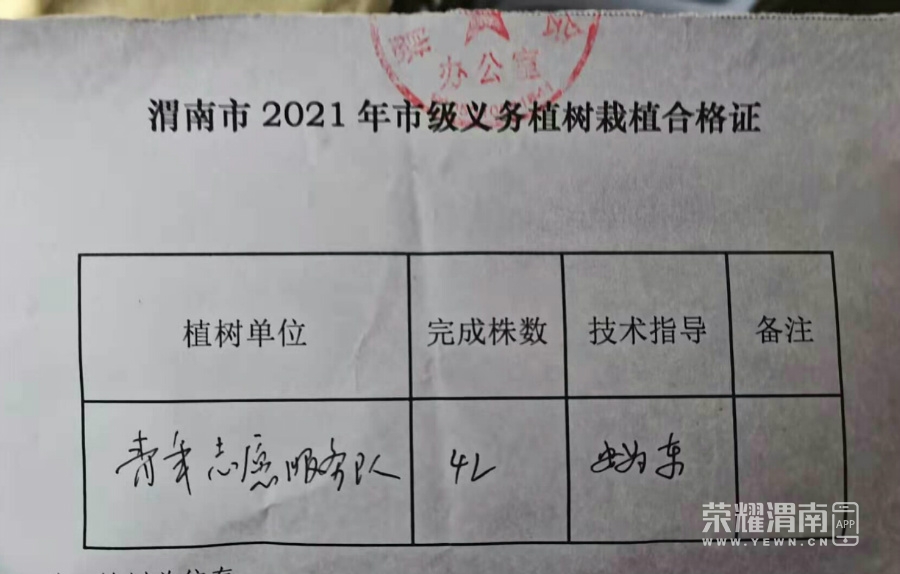 办公室
渭南市2021年市级义务植树栽植合格证
植树单位 完成株数 技术指导 备注
青年志愿服务队
荣耀渭南 APP
WWW.YEWN.CN